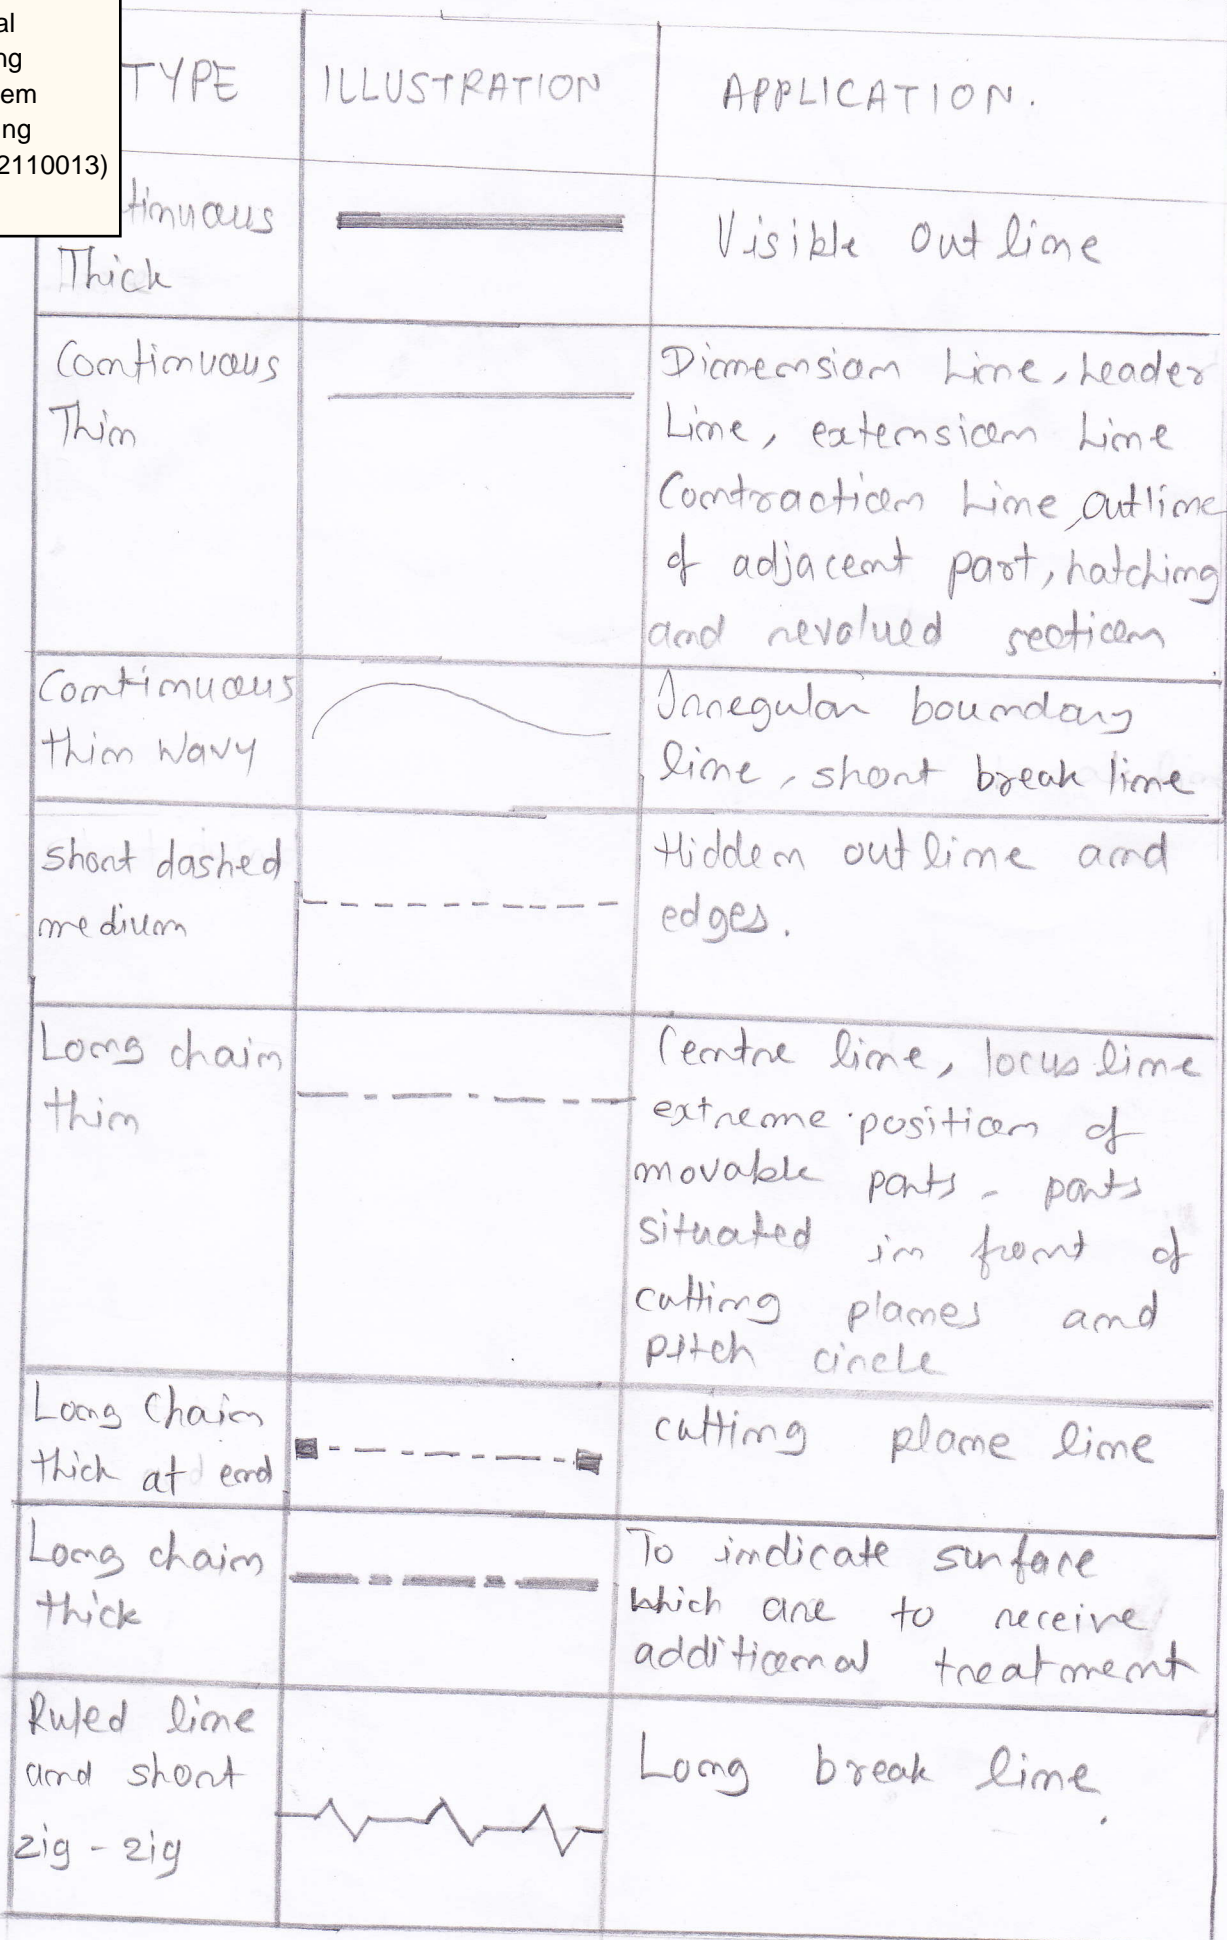 al
ng
em
ng
2110013)
TYPE
ILLUSTRATION
APPLICATION.
tinuous
Thick
Visible Outline
Continuous
Thin
Dimension Line, Leader
Line, extension Line
Contraction Line, outline
of adjacent part, hatching
and revalued section
Continuous
thin Wavy
Irregular boundary
line, short break line
short dashed
medium
Hidden outline and
edges.
Long chain
thin
Centre line, locus line
extreme position of
movable parts - parts
situated in front of
cutting planes and
pitch circle
Long Chain
thick at end
cutting plane line
Long chain
thick
To indicate surface
which are to receive
additional treatment
Ruled line
and short
zig-zig
Long break line.